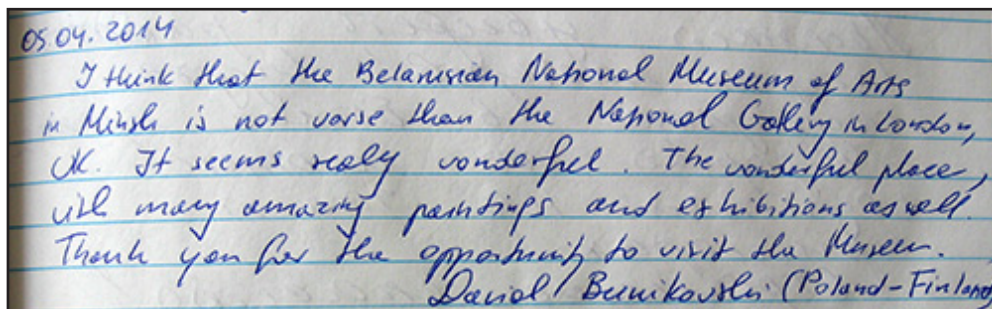 05.04.2014
I think that the Belarusian National Museum of Arts
in Minsk is not worse than the National Gallery in London,
UK. It seems really wonderful. The wonderful place,
with many amazing paintings and exhibitions as well.
Thank you for the opportunity to visit the Museum.
David Bunikowski (Poland-Finland)